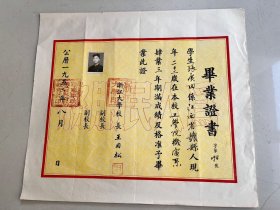 畢業證書
字第 號
學生 係江西省 縣人現
年二十三歲在本校工學院機電系
肄業三年期滿成績及格准予畢
業此證
浙江大學校長王國松
副校長
副校長
公曆一九五 年八月 日